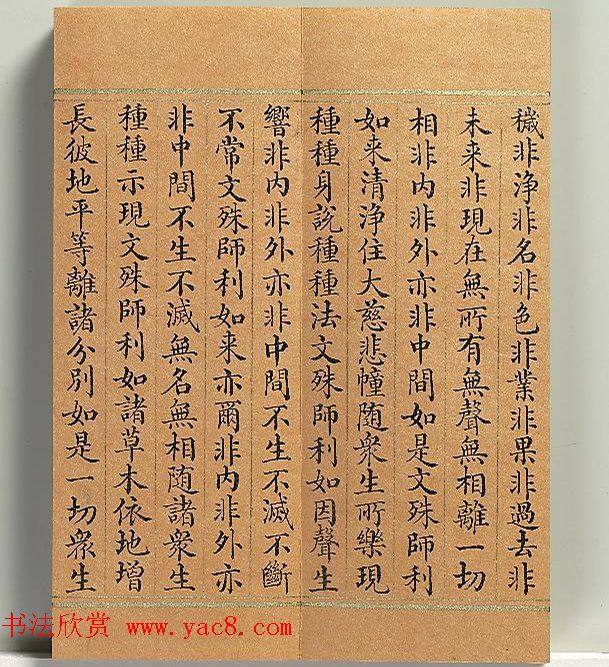 穢非淨非名非色非業非果非過去非
未来非現在無所有無聲無相離一切
相非内非外亦非中間如是文殊師利
如来清淨住大慈悲幢随衆生所樂現
種種身說種種法文殊師利如因聲生
響非内非外亦非中間不生不滅不斷
不常文殊師利如来亦爾非内非外亦
非中間不生不滅無名無相随諸衆生
種種示現文殊師利如諸草木依地增
長彼地平等離諸分別如是一切衆生
书法欣赏 www.yac8.com